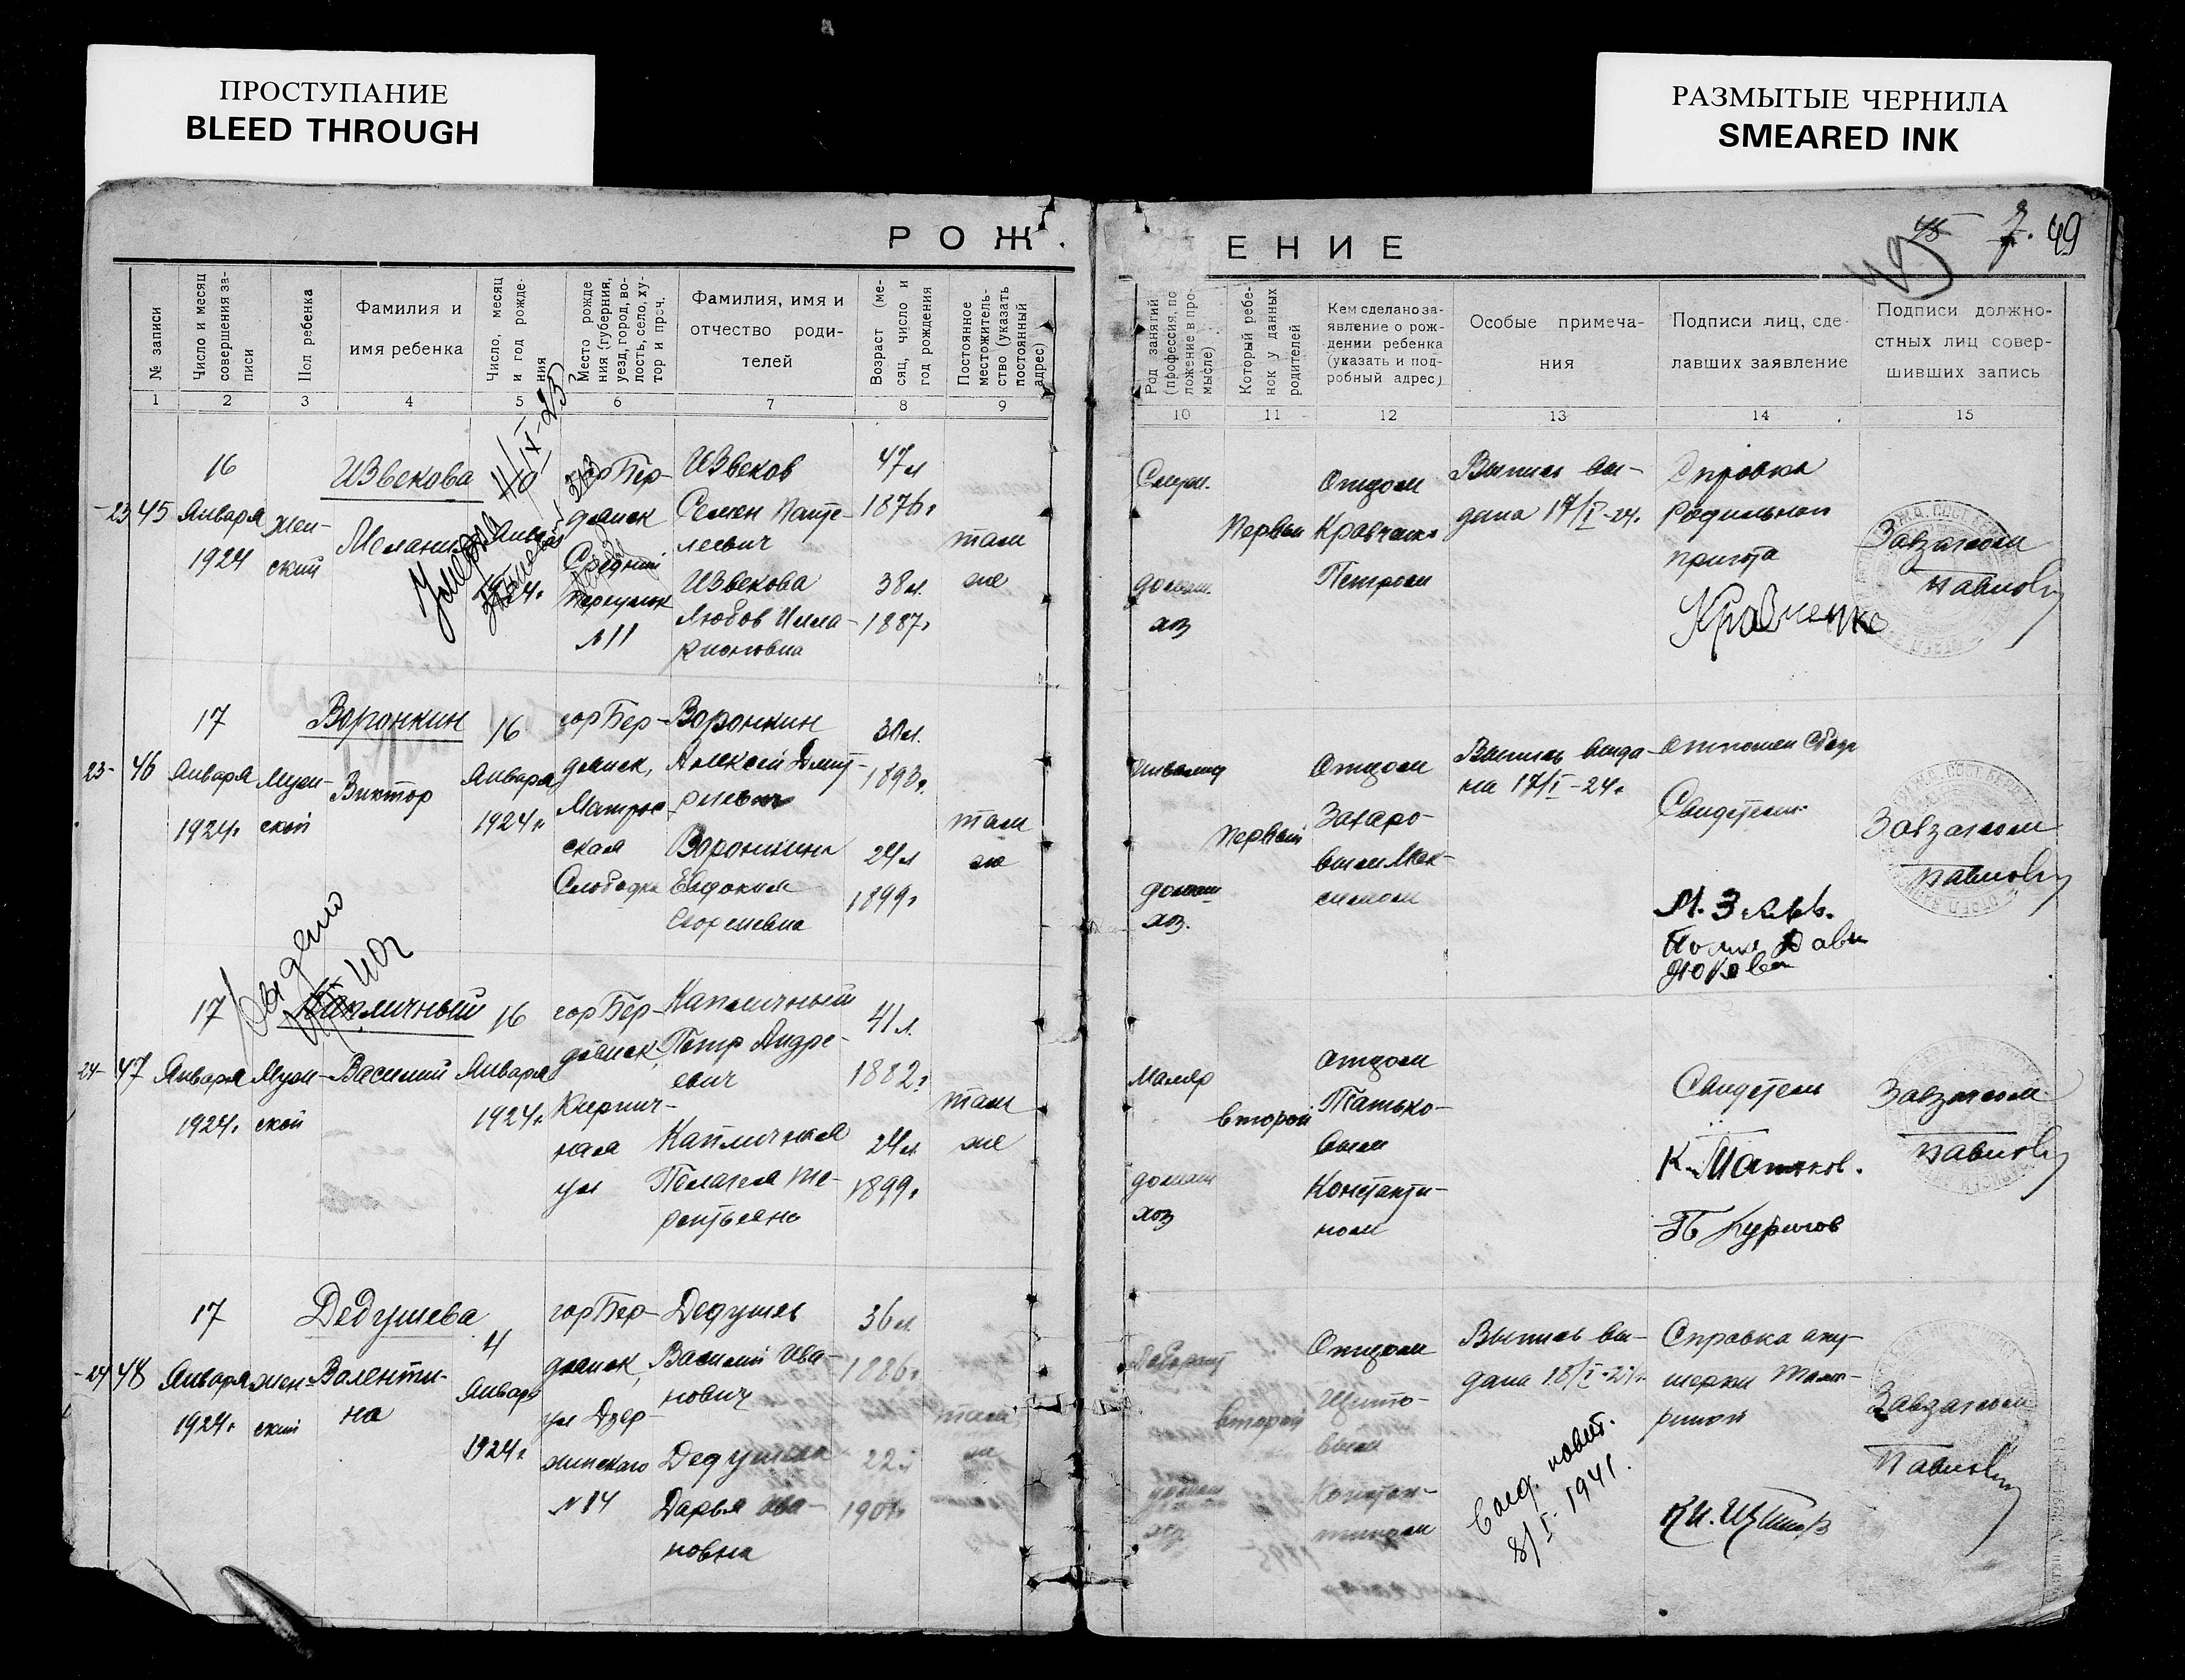 ПРОСТУПАНИЕ
BLEED THROUGH
РАЗМЫТЫЕ ЧЕРНИЛА
SMEARED INK
РОЖ ЕНИЕ
45 7. 49
№ записи
Число и месяц совершения за-
писи
Пол ребенка
Фамилия и
имя ребенка
Число, месяц
и год рожде-
ния
Место рожде
ния (губерния,
уезд, город, во-
лость, село, ху-
тор и проч.
Фамилия, имя и
отчество роди-
телей
Возраст (ме-
сяц, число и
год рождения
Постоянное
местожитель-
ство (указать
постоянный
адрес)
Род занятий
(профессия, по
ложение в про-
мысле)
Который ребе-
нок у данных
родителей
Кем сделано за-
явление о рож-
дении ребенка
(указать и под-
робный адрес)
Особые примеча-
ния
Подписи лиц, сде-
лавших заявление
Подписи должно-
стных лиц совер-
шивших запись
1 2 3 4 5 6 7 8 9
10 11 12 13 14 15
23 45
16
Января
1924
жен-
ский
Извекова
Мелания
Умерла
11/IX-25
гор Бер-
дянск
Средний
переулок
№ 11
Извеков
Семен Панте-
леевич
Извекова
Любов Илла-
рионовна
47 л
1876 г
38 л.
1887 г
там
же
домаш.
хоз
Первый
Отцом
Кравченко
Петром
Выпись вы-
дана 17/I-24 г.
Справка
Родильного
приюта
Кравченко
Завзагсом
Павлов
23- 46
17
Января
1924 г.
Муж-
ской
Воронкин
Виктор
16
Января
1924 г.
гор Бер-
дянск,
Матрос
ская
Слободка
Воронкин
Алексей Дмит-
риевич
Воронкина
Евдокия
30 л.
1893 г.
24 л
1899 г
там
же
Инвалид
домаш
хоз.
Первый
Отцом
Захаро-
вым Мак-
симом
Выпись выда-
на 17/I-24 г
Свидетели:
Завзагсом
Павлов
24- 47
17
Января
1924 г.
Муж-
ской
Выдено
Капличный
Василий
16
Января
1924 г.
гор Бер-
дянск
Кирпич-
ная
ул
Капличный
Петр Андре-
евич
Капличная
Пелагея Те-
рентьевна
41 л.
1882 г
24 л
1899 г
там
же
Маляр
домаш
хоз
второй
Отцом
Татько-
вым
Константи-
ном
Свидетели
Завзагсом
Павлов
-24 48
17
Января
1924 г.
жен-
ский
Дедушева
Валенти-
на
4
Января
1924 г.
гор Бер-
дянск,
ул Дзер-
жинского
№ 14
Дедушев
Василий Ива-
нович
Дедушева
Дарья Ива-
новна
36 л.
1886 г.
22 л
1901 г
там
же
домаш
хоз
второй
Отцом
Констан-
тином
Выпись вы-
дана 18/I-24 г.
8/I-1941.
Справка аку-
шерки
Завзагсом
Павлов